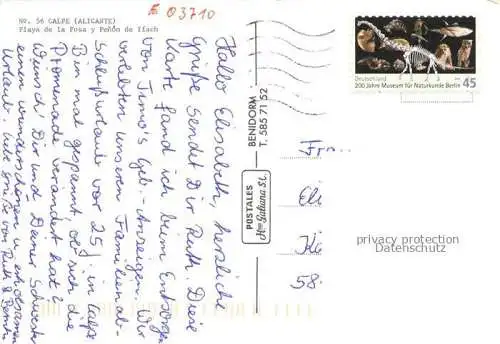 No. 56 CALPE (ALICANTE)
Playa de la Fosa y Peñón de Ifach
E 03710
Hallo Elisabeth, herzliche
Grüße sendet Dir Ruth. Diese
Karte fand ich beim Entsorgen
von Timo's Geb.-Anzeigen. Wir
verlebten unseren Familienab-
schlußurlaub vor 25 J. in Calpe
Bin mal gespannt, ob sich die
Promenade verändert hat?
Wünsch' Dir und Deiner Schwester
einen wunderschönen u. erholsamen
Urlaub. Liebe Grüße von Ruth &
BENIDORM
T. 585 71 52
POSTALES
Hnos Galiana S.L.
Deutschland
200 Jahre Museum für Naturkunde Berlin
45
Frau
Eli
Ki
58
privacy protection
Datenschutz